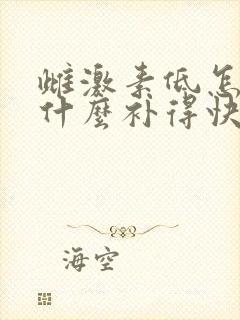 雌激素低怎
什麼补得快
海空